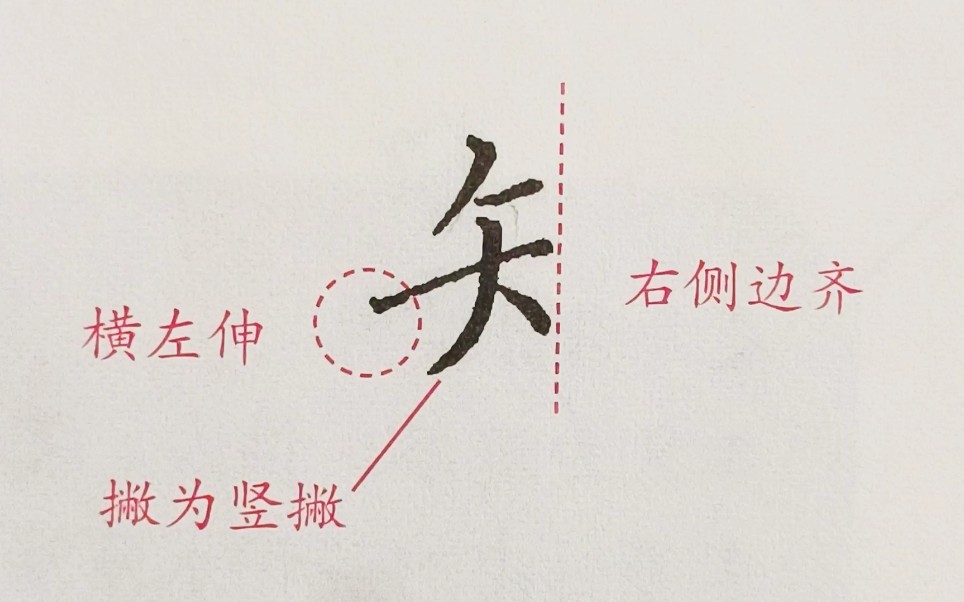 矢
右侧边齐
横左伸
撇为竖撇